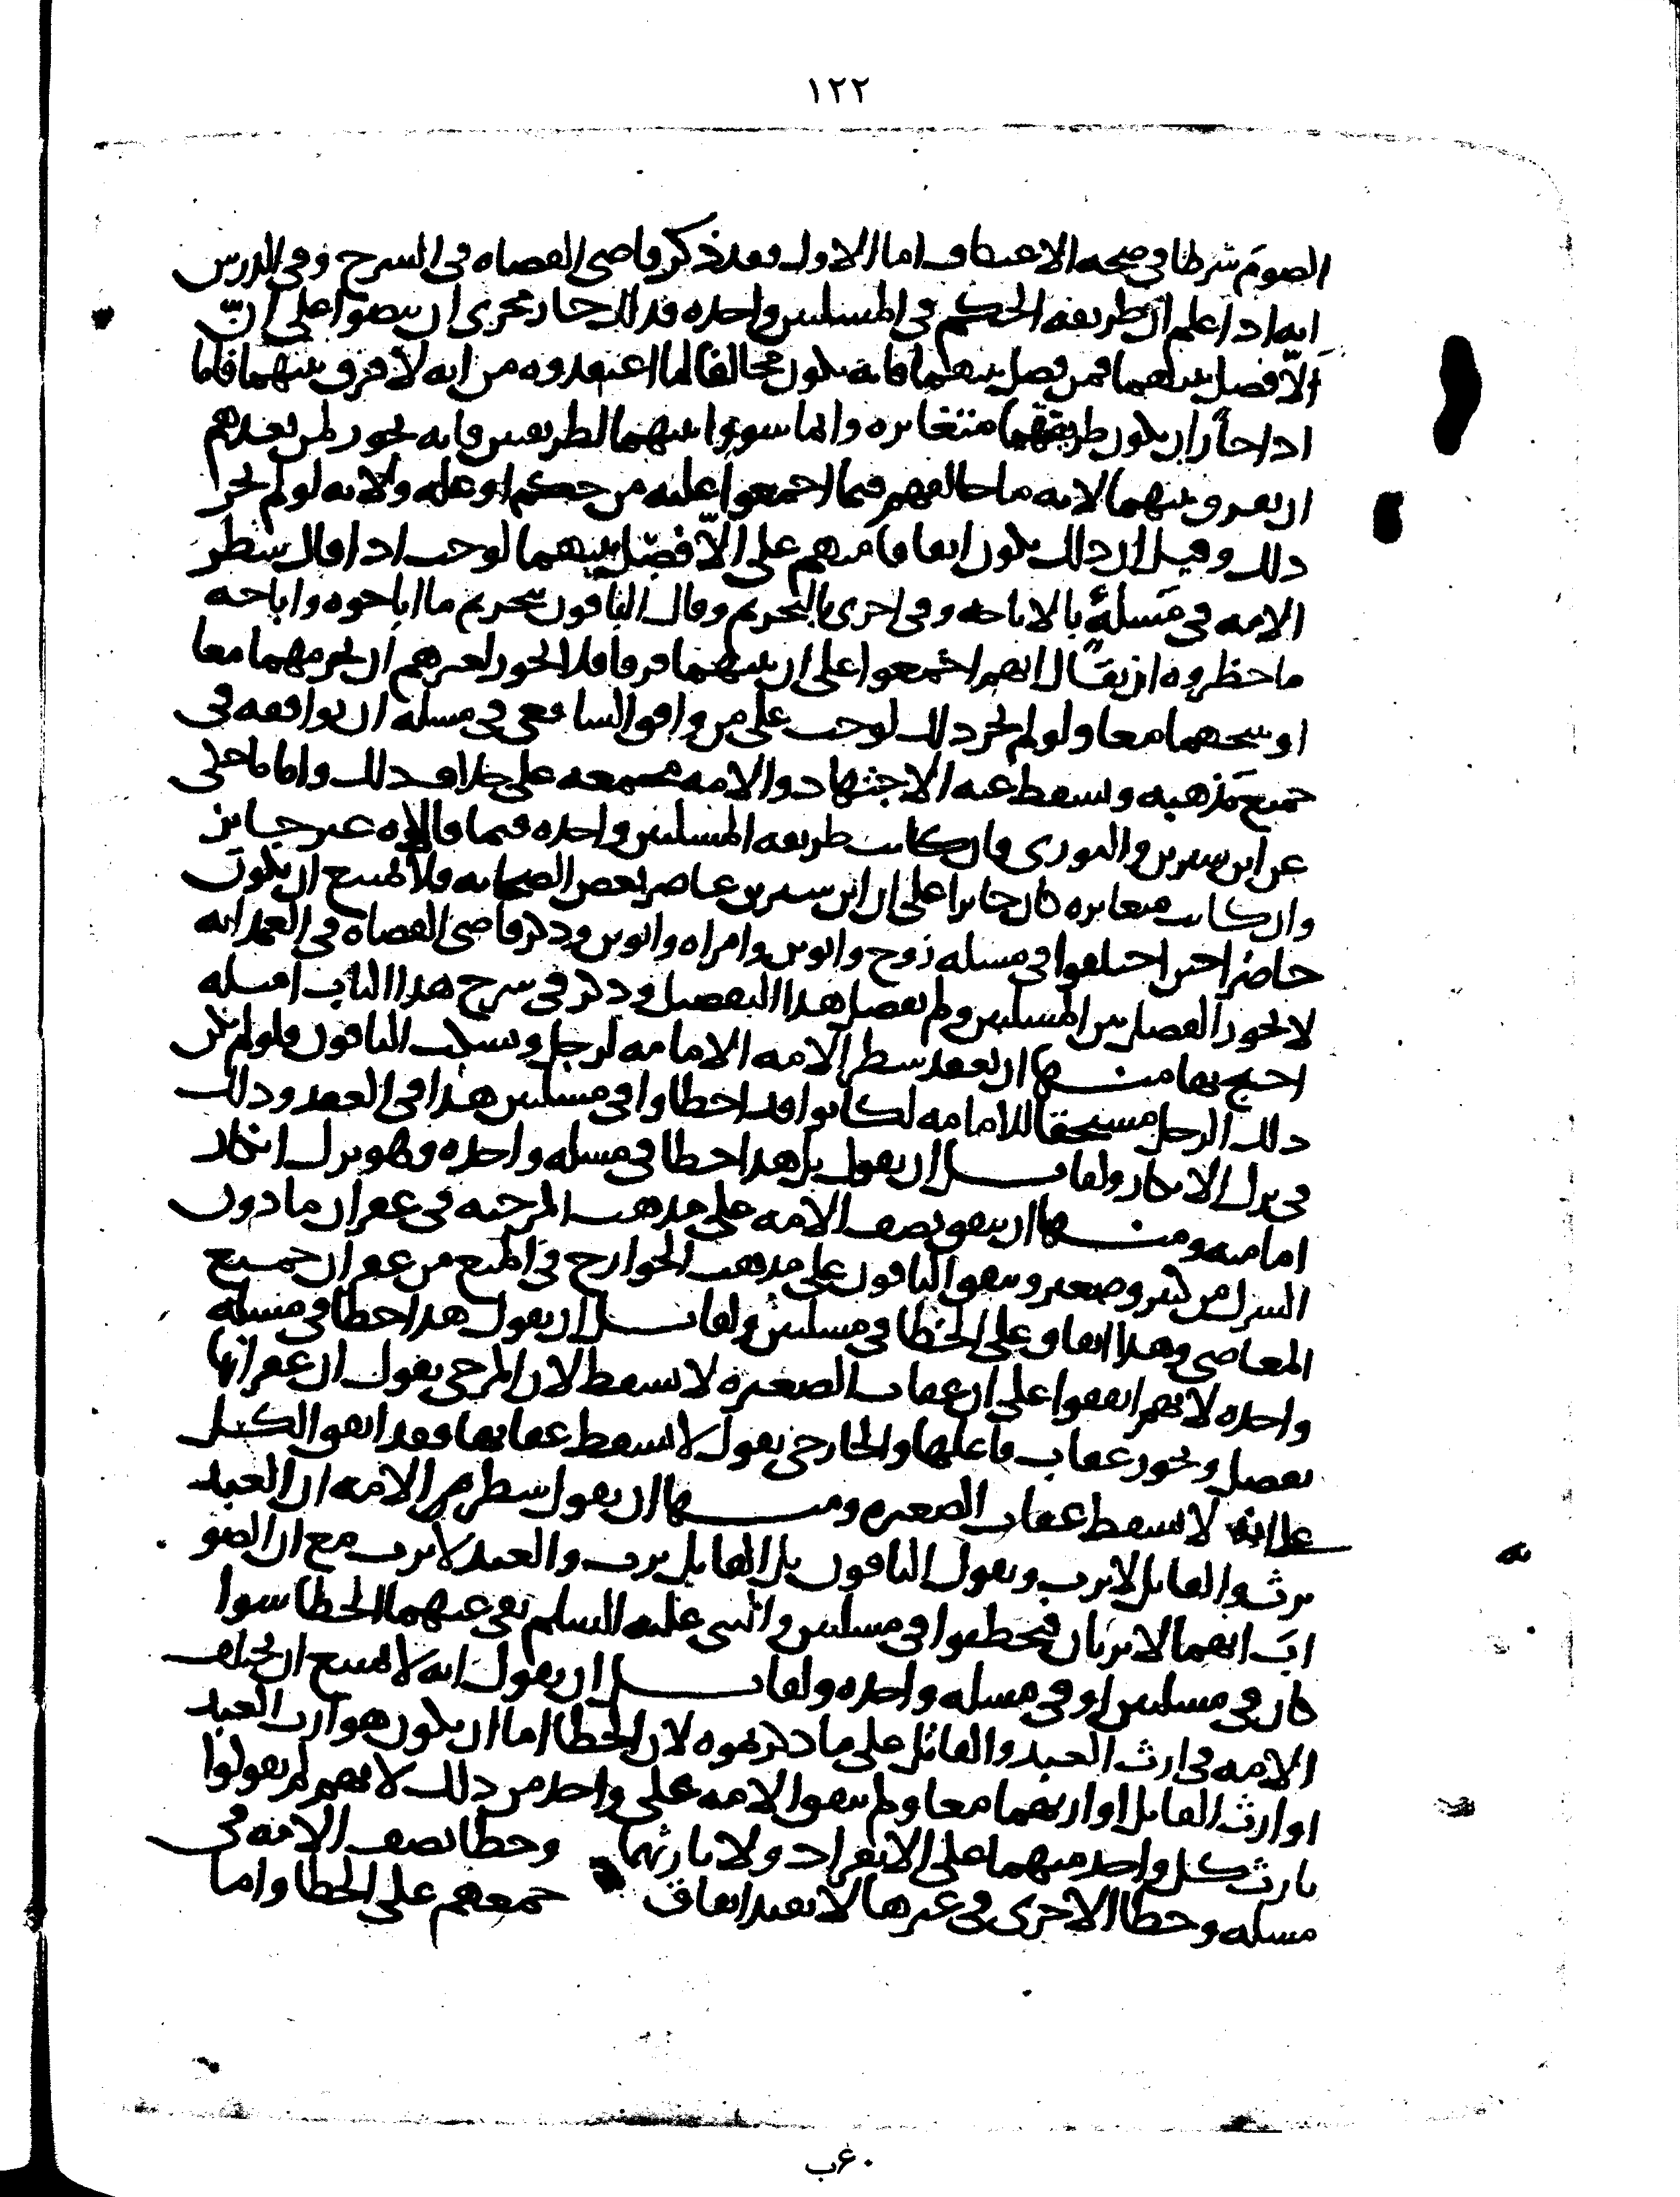 ١٢٢
الصوم شرطا في صحه الاعتكاف اما الاول فقد ذكر قاضى القضاه فى الشرح وفى الدرس
انه اذا علم ان طريقه الحكم في المسلتين واحده فذلك جار مجرى ان ينصوا على ان
الّا فصل بينهما فمن فصل بينهما فانه يكون مخالفا لما اعتقدوه من انه لا فرق بينهما فاما
اذا جاز ان يكون طريقتهما متغايره وانما سووا بينهما لطريقين فانه يجوز لمن بعدهم
ان يفرق بينهما لانه ما خالفهم فيما اجمعوا عليه من حكم او عله ولانه لو لم يجز
ذلك وقيل ان ذلك يكون اتفاقا منهم على الّا فصل بينهما لوجب اذا قال شطر
الامه في مسلة بالاباحه وفى اخرى بالتحريم وقال الباقون بتحريم ما اباحوه واباحه
ما حظروه ان يقال انهم اجمعوا على ان بينهما فرقا فلا يجوز لغيرهم ان يحرمهما معا
او يبيحهما معا ولو لم يجز ذلك لوجب على من وافق الشافعى فى مسله ان يوافقه فى
جميع مذهبه ويسقط عنه الاجتهاد والامه مجمعه على خلاف ذلك واما ما حكى
عن ابن سيرين والثورى فان كانت طريقه المسلتين واحده فما قالاه غير جايز
وان كانت متغايره كان جائزا على ان ابن سيرين عاصر بعض الصحابه فلا يمتنع ان يكون
حاضرا حين اختلفوا فى مسله زوج وابوين وامراه وابوين وذكر قاضى القضاه فى العمد انه
لا يجوز الفصل بين المسلتين ولم يفصل هذا التفصيل وذكر فى شرح هذا الباب امثله
احتج بها منها ان يعقد شطر الامه الامامه لرجل ويسكت الباقون فلو لم يكن
ذلك الرجل مستحقا للامامه لكانوا قد اخطاوا فى مسلتين هذا فى العقد وذلك
فى ترك الانكار ولقائل ان يقول بل هذا خطا فى مسله واحده وهو ترك انكار
امامته ومنها ان يتفق نصف الامه على مذهب المرجئه فى غفران ما دون
الشرك من كبير وصغير ويتفق الباقون على مذهب الخوارج فى المنع من غفران جميع
المعاصى وهذا اتفاق على الخطا فى مسلتين ولقائل ان يقول هذا خطا فى مسله
واحده لانهم اتفقوا على ان عقاب الصغيره لا يسقط لان المرجى يقول ان غفرانها
تفضل ويجوز عقاب فاعلها والخارجى يقول لا يسقط عقابها فقد اتفق الكل
على انه لا يسقط عقاب الصغيره ومنها ان يقول شطر من الامه ان العبد
يرث والقاتل لا يرث ويقول الباقون بل القاتل يرث والعبد لا يرث مع ان الصو
اب انهما لا يرثان فيخطئوا فى مسلتين والنبى عليه السلم نفى عنهما الخطا سوا
كان فى مسلتين او فى مسله واحده ولقائل ان يقول انه لا يمتنع ان يختلف
الامه فى ارث العبد والقاتل على ما ذكرتموه لان الخطا اما ان يكون هو ارث العبد
او ارث القاتل او ارثهما معا ولم يتفق الامه على واحد من ذلك لانهم لم يقولوا
بارث كل واحد منهما على الانفراد ولا بارثهما وخطا نصف الامه فى
مسله وخطا الاخرى فى غيرها لا يفيد اتفاق جميعهم على الخطا واما
٦٠ب